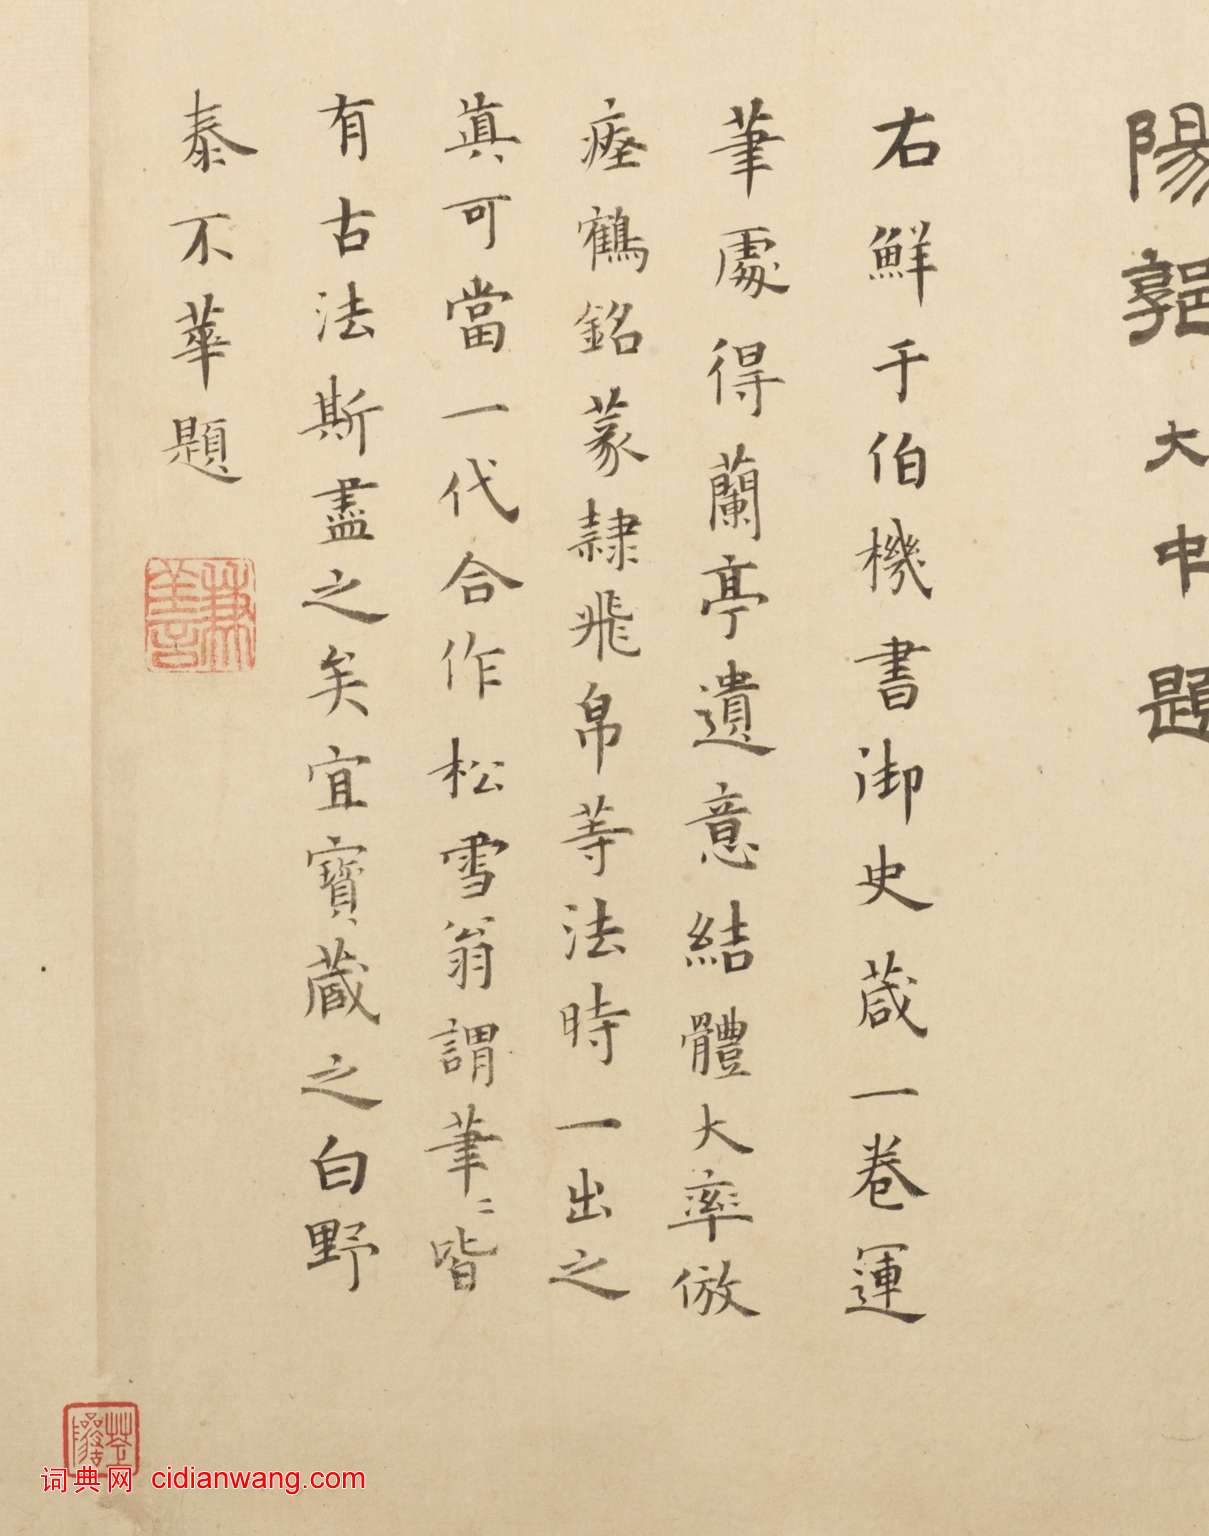 陽郭大中題
右鮮于伯機書御史箴一卷運
筆處得蘭亭遺意結體大率倣
瘞鶴銘篆隸飛帛等法時一出之
真可當一代合作松雪翁謂筆〻皆
有古法斯盡之矣宜寶藏之白野
泰不華題
兼善
词典网 cidianwang.com